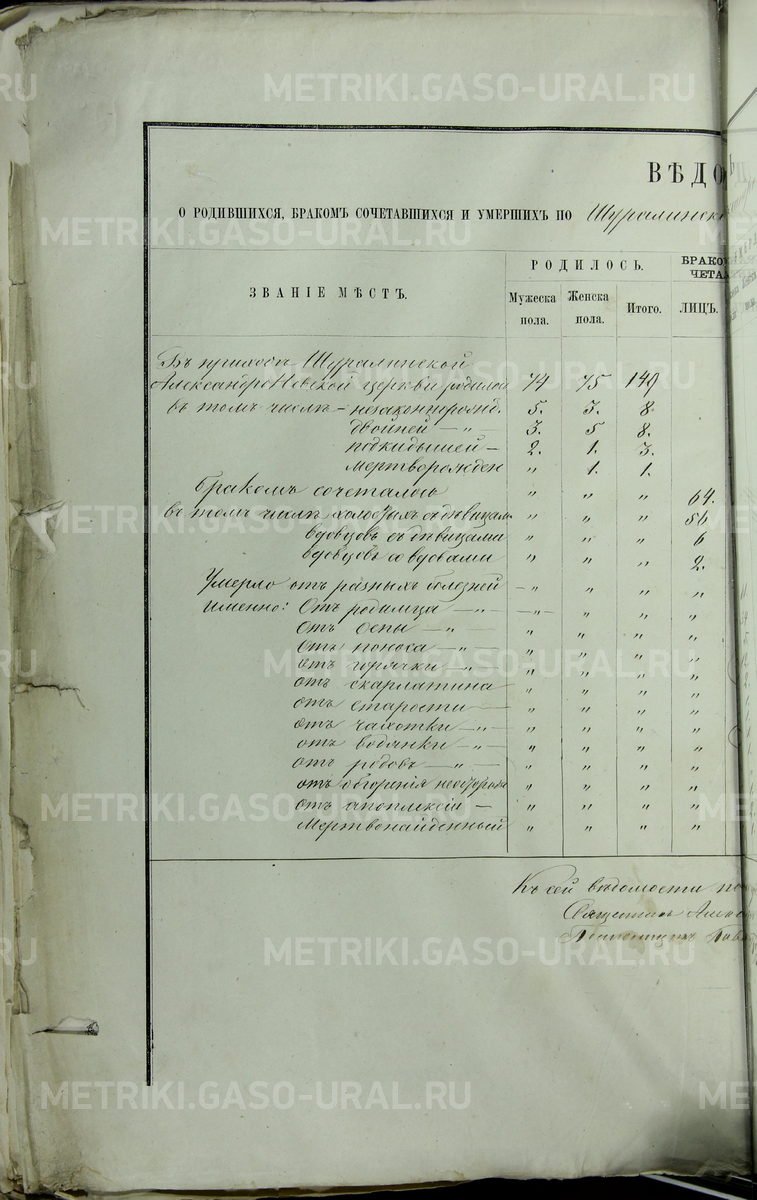 METRIKI.GASO-URAL.RU
ВѢДО
О РОДИВШИХСЯ, БРАКОМЪ СОЧЕТАВШИХСЯ И УМЕРШИХЪ ПО Шуралинск
ЗВАНІЕ МѢСТЪ.
РОДИЛОСЬ.
БРАКО
ЧЕТА
Мужеска пола.
Женска пола.
Итого.
ЛИЦЪ.
Въ приходѣ Шуралинской
Александро Невской церкви родилось 74 75 149
въ томъ числѣ – незаконнорожд. 5. 3. 8.
двойней – " – 3. 5 8.
подкидышей – 2. 1. 3.
мертворожден " 1. 1.
Бракомъ сочеталось " " " 64.
въ томъ числѣ холостыхъ съ дѣвицам " " " 56
вдовцовъ съ дѣвицами " " " 6
вдовцовъ со вдовами " " " 2.
Умерло отъ разныхъ болезней – " " " "
именно: Отъ родимца – " – – " – " " "
Отъ оспы – " – " " " "
Отъ поноса – " – " " " "
отъ горячки – " – " " " "
отъ скарлатина " " " "
отъ старости – " " " "
отъ чахотки – " – " " " "
отъ водянки – " – " " " "
отъ родовъ – " – " " " "
отъ обгорѣнія " " " "
отъ апоплексіи – " " " "
Мертвонайденный " " " "
Къ сей вѣдомости
Священникъ